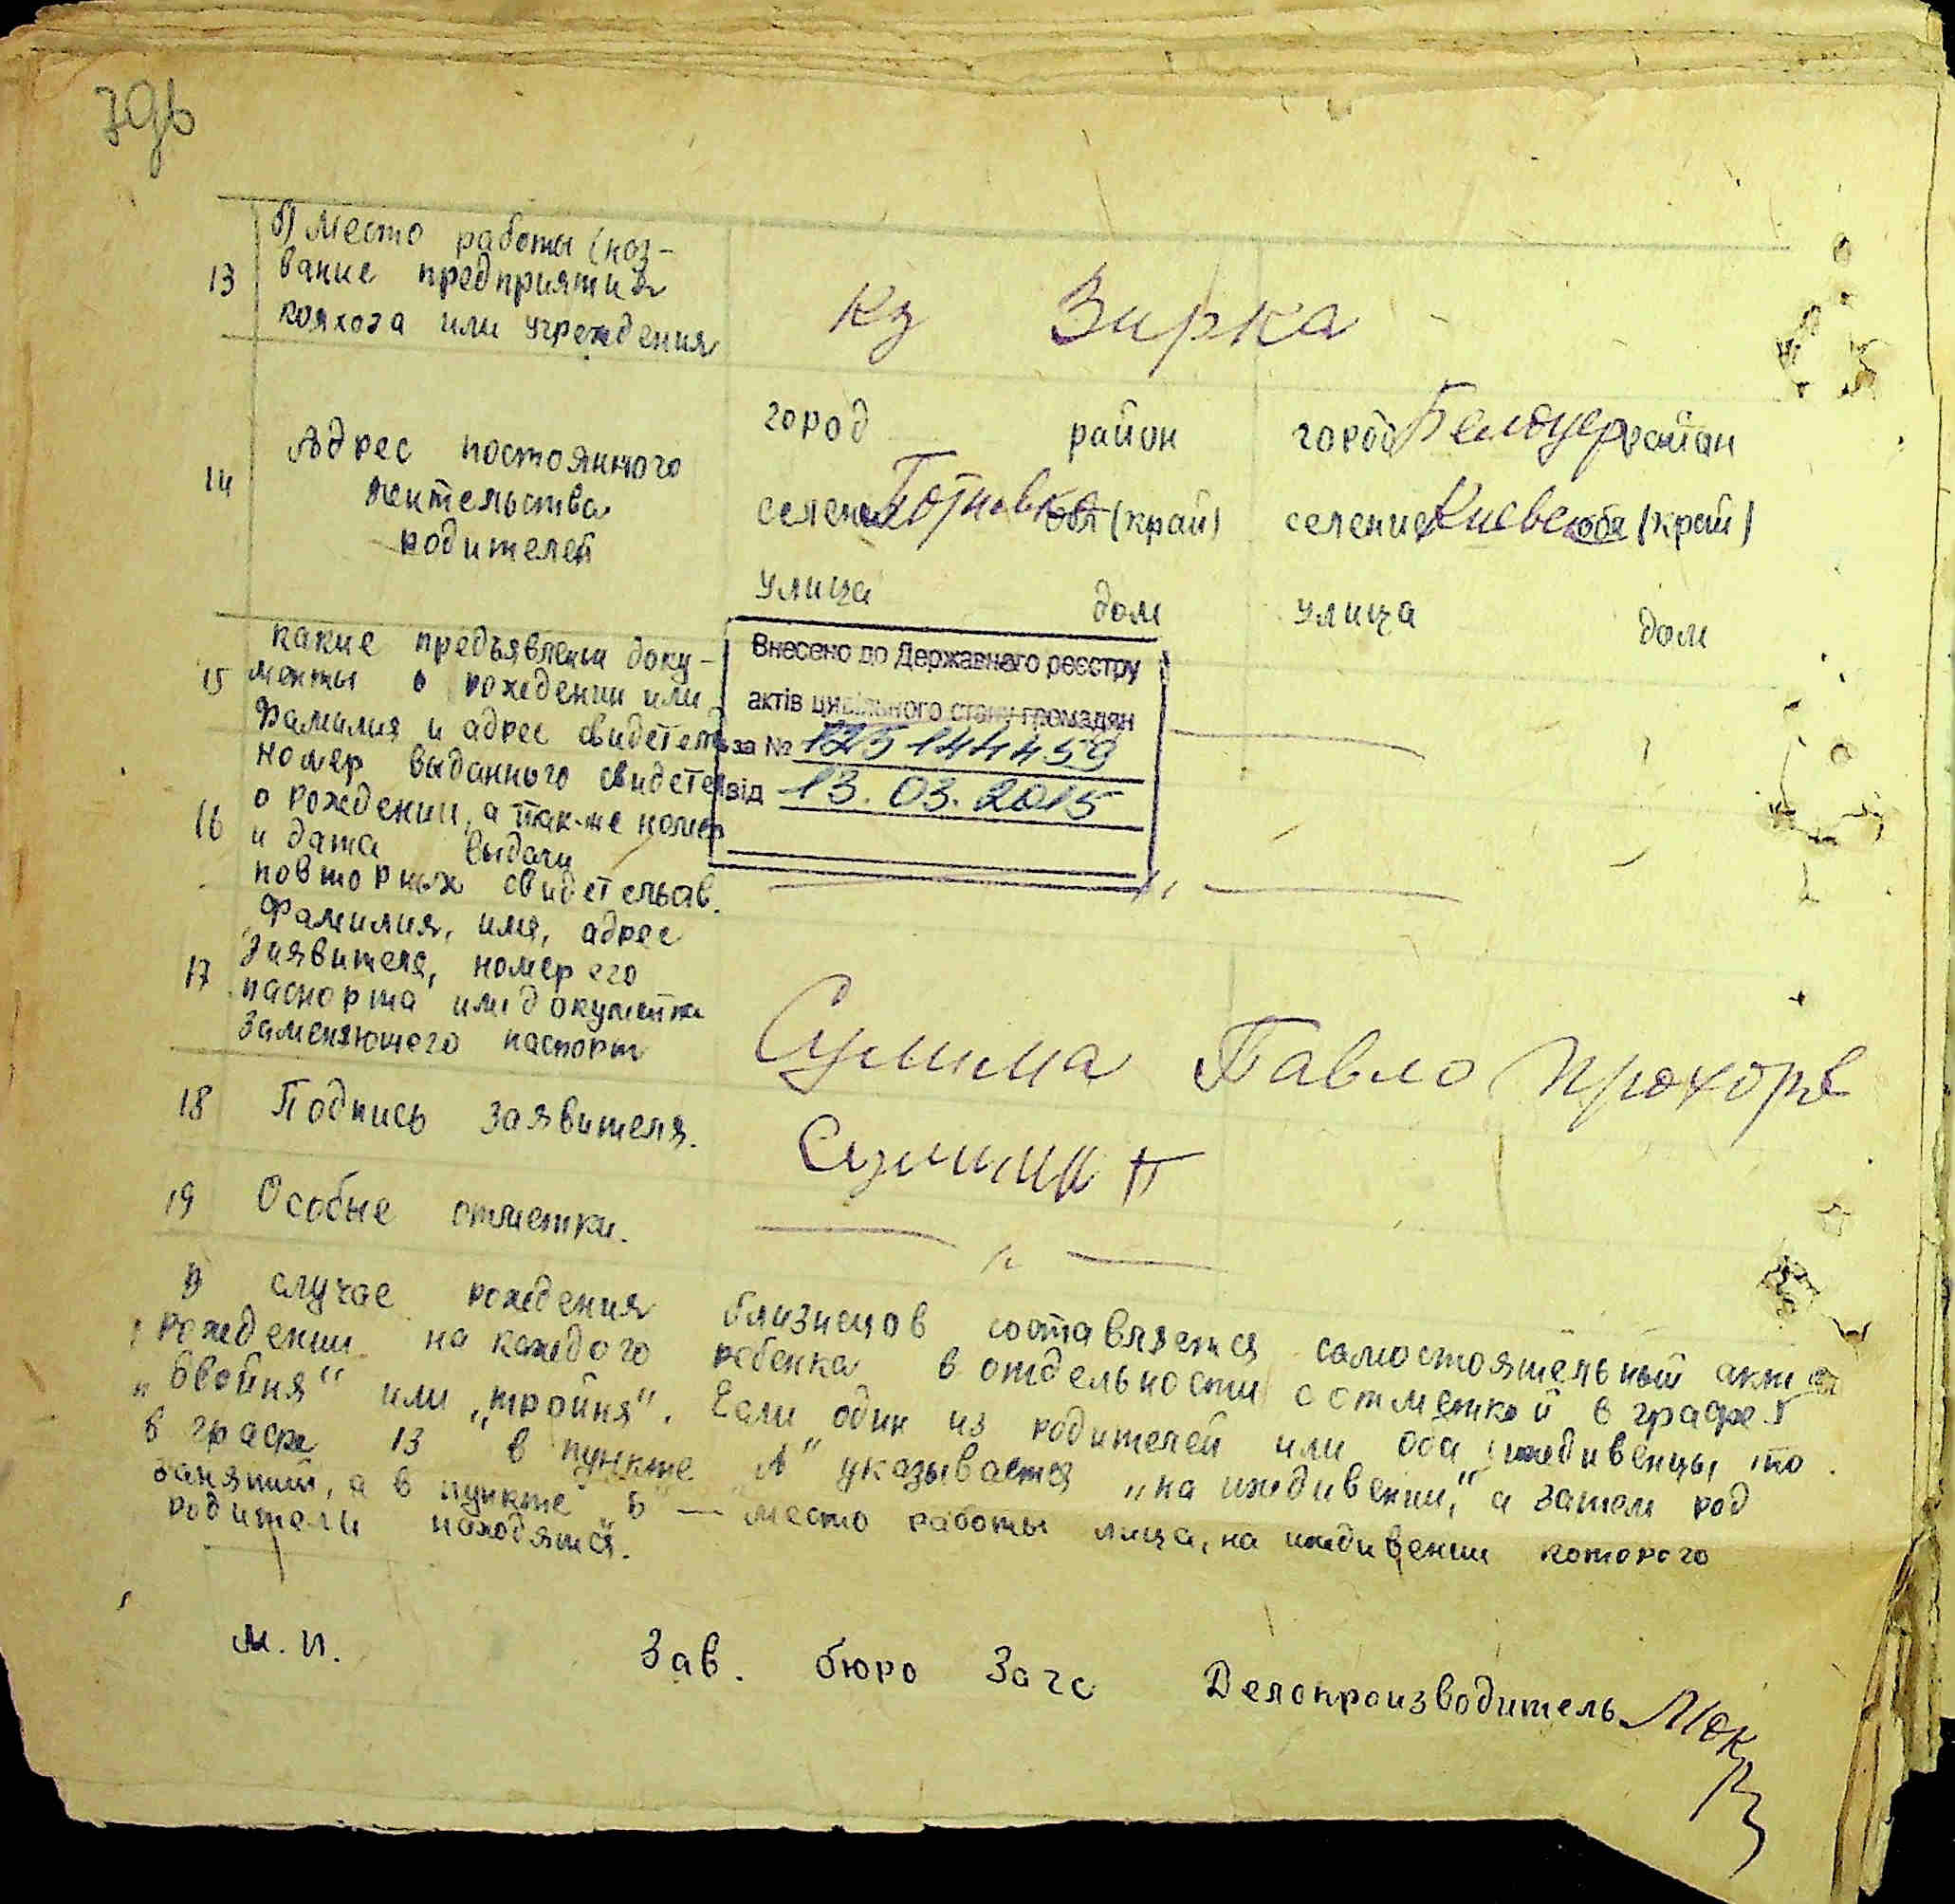 13
б) Место работы (наз-
вание предприятия
колхоза или учреждения
кз Зирка
14
Адрес постоянного
жительства
родителей
город район
селение обл (край)
улица дом
город Белоцер район
селение Киевс обл (край)
улица дом
15
какие предъявлены доку-
менты о рождении или
фамилия и адрес свидетел
16
номер выданного свидетел
о рождении, а так-же номер
и дата выдачи
повторных свидетельств.
Внесено до Державного реєстру
актів цивільного стану громадян
за № 125144459
від 13.03.2015
— " —
17
Фамилия, имя, адрес
заявителя, номер его
паспорта или документа
заменяющего паспорт
Сулима Павло Прохоров
18 Подпись заявителя.
Сулима П
19 Особые отметки.
— " —
В случае рождения близнецов составляется самостоятельный акт о
рождении на каждого ребенка в отдельности с отметкой в графе 5
„двойня" или „тройня". Если один из родителей или оба иждивенцы, то
в графе 13 в пункте „А" указывается „на иждивении," а затем род
занятий, а в пункте „Б" — место работы лица, на иждивении которого
родители находятся.
М. П. Зав. бюро Загс Делопроизводитель